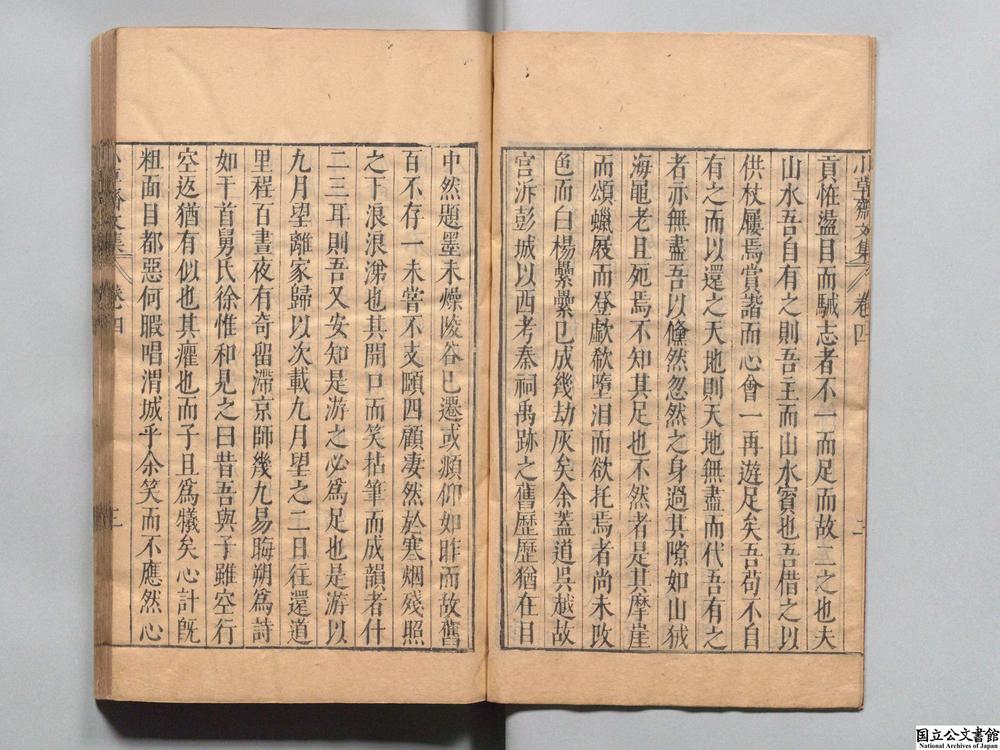 小草齋文集 卷四 二
貢恠盪目而馘志者不一而足而故二之也夫
山水吾自有之則吾主而山水賓也吾借之以
供杖屨焉賞諧而心會一再遊足矣吾苟不自
有之而以還之天地則天地無盡而代吾有之
者亦無盡吾以儵然忽然之身過其隙如山狨
海黽老且死焉不知其足也不然者是其摩崖
而頌蠟屐而登歔欷墮泪而欲托焉者尚未改
色而白楊纍纍已成幾劫灰矣余蓋道吳越故
宮泝彭城以西考秦祠禹跡之舊歷歷猶在目
中然題墨未燥陵谷已遷或頫仰如昨而故舊
百不存一未嘗不支頤四顧凄然於寒烟殘照
之下浪浪涕也其開口而笑拈筆而成韻者什
二三耳則吾又安知是游之必爲足也是游以
九月望離家歸以次載九月望之二日往還道
里程百晝夜有奇留滯京師幾九易晦朔爲詩
如干首舅氏徐惟和見之曰昔吾與子雖空行
空返猶有似也其癯也而子且爲犧矣心計旣
粗面目都惡何暇唱渭城乎余笑而不應然心
小草齋文集 卷四 三
国立公文書館
National Archives of Japan